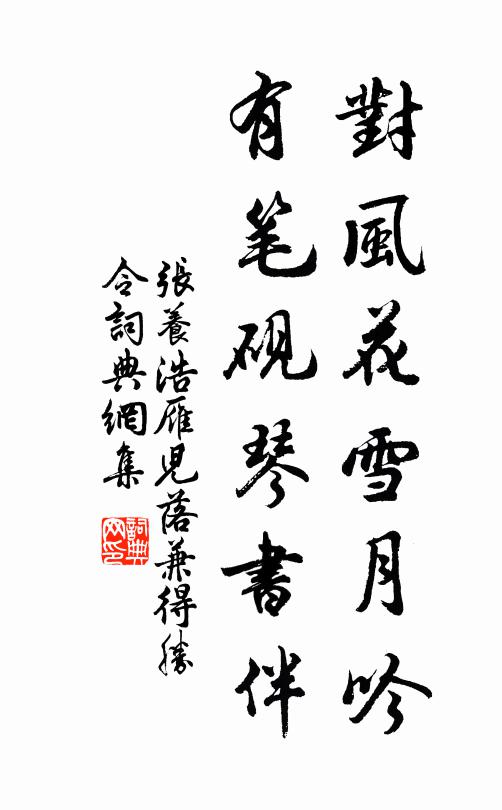 對風花雪月吟
有笔硯琴書伴
張養浩雁児落兼得勝
令詞典網集
詞典
网印